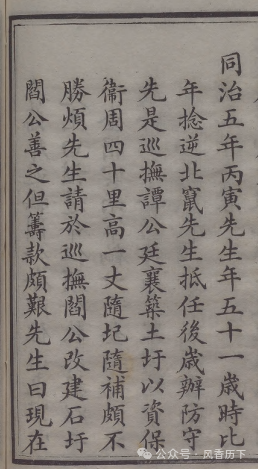 同治五年丙寅先生年五十一歲時比
年捻逆北竄先生抵任後歲辦防守
先是巡撫譚公廷襄築土圩以資保
衛周四十里高一丈隨圮隨補頗不
勝煩先生請於巡撫閻公改建石圩
閻公善之但籌款頗艱先生曰現在
公众号·风香历下